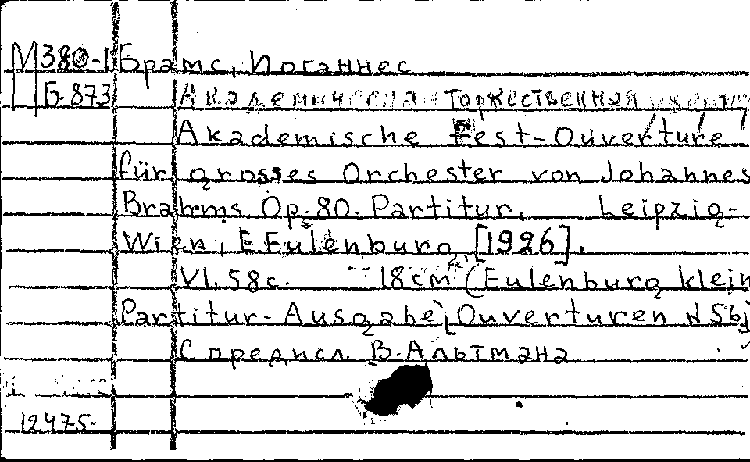 М380-1 Брамс, Иоганнес
Б-873 Академическая торжественная
Akademische Fest-Ouverture
für grosses Orchester von Johannes
Brahms Op. 80. Partitur. Leipzig-
Wien, E. Eulenburg, [1926].
VI. 58 с. 18 cm (Eulenburg klein
Partitur-Ausgabe, Ouverturen
С предисл. В. Альтмана
12475.